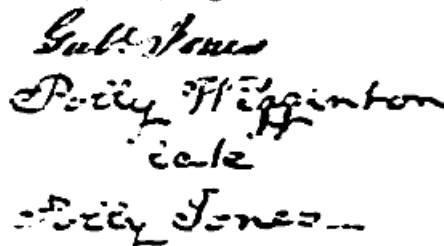 Gabl. Jones
Polly Wigginton
Polly Jones